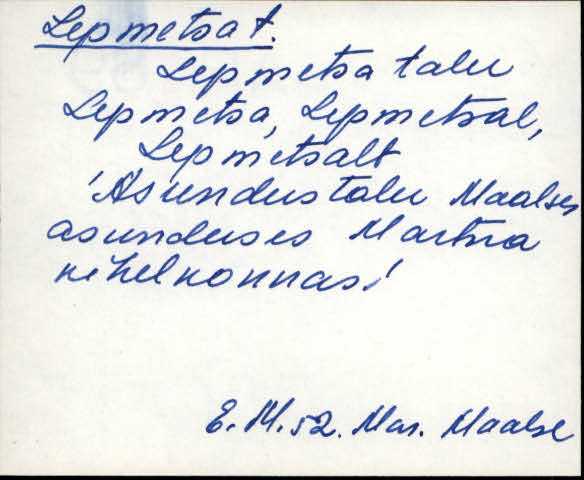 Lepmetsa t.
Lepmetsa talu
Lepmetsa, Lepmetsal,
Lepmetsalt
'Asundustalu Maalses
asunduses Martna
kihelkonnas!
E. M. 52. Mar. Maalse